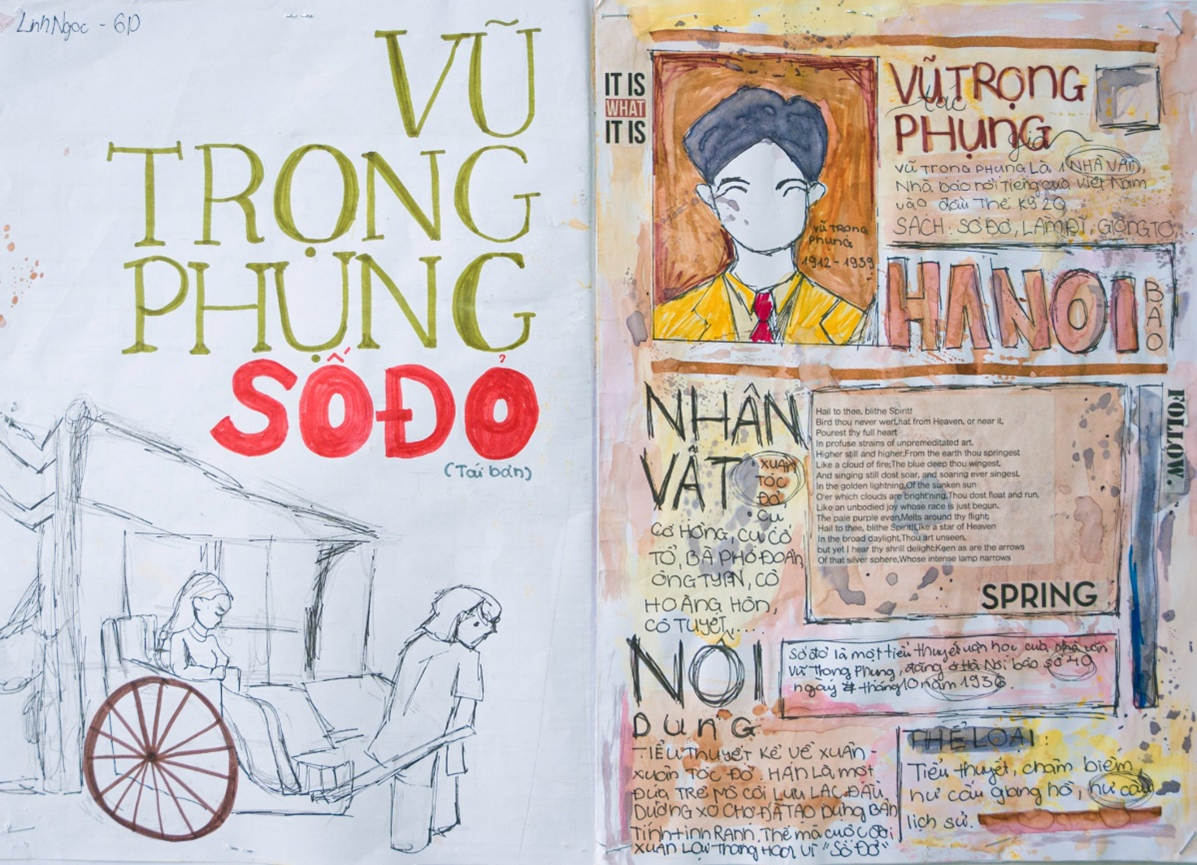 Linh Ngọc - 6D
VŨ
TRỌNG
PHỤNG
SỐ ĐỎ
(Tái bản)
IT IS
WHAT
IT IS
VŨ TRỌNG
PHỤNG
tác giả
Vũ Trọng Phụng Là 1 NHÀ VĂN,
Nhà báo nổi tiếng của Việt Nam
vào đầu Thế Kỷ 20
SÁCH: SỐ ĐỎ, LÀM ĐĨ, GIÔNG TỐ
Vũ Trọng
Phụng
1912 - 1939
HANOI
BAO
NHÂN
VẬT
XUÂN
TÓC
ĐỎ
Cụ
CỐ HỒNG, CỤ CỐ
TỔ, BÀ PHÓ ĐOAN,
ÔNG TYPN, CÔ
HOÀNG HÔN,
CÔ TUYẾT,....
Hail to thee, blithe Spirit!
Bird thou never wert,hat from Heaven, or near it,
Pourest thy full heart
In profuse strains of unpremeditated art.
Higher still and higher,From the earth thou springest
Like a cloud of fire;The blue deep thou wingest,
And singing still dost soar, and soaring ever singest.
In the golden lightning,Of the sunken sun
O'er which clouds are bright'ning,Thou dost float and run,
Like an unbodied joy whose race is just begun.
The pale purple even,Melts around thy flight;
Hail to thee, blithe Spirit!Like a star of Heaven
In the broad daylight,Thou art unseen,
but yet I hear thy shrill delight:Keen as are the arrows
Of that silver sphere,Whose intense lamp narrows
SPRING
FOLLOW.
NỘI
Dung
Số đỏ là một tiểu thuyết văn học của nhà văn
Vũ Trọng Phụng, đăng ở Hà Nội báo số 40
ngày 7 tháng 10 năm 1936.
TIỂU THUYẾT KỂ VỀ XUÂN -
XUÂN TÓC ĐỎ. HẮN LÀ MỘT
ĐỨA TRẺ MỒ CÔI LƯU LẠC ĐẦU
ĐƯỜNG XÓ CHỢ ĐÃ TẠO DỰNG BẢN
Tính tinh RANH. Thế mà cuộc đời
XUÂN LẠI Thăng Hoa Vì "Số Đỏ"
THỂ LOẠI
Tiểu thuyết, châm biếm,
hư cấu giang hồ, hư cấu
lịch sử.